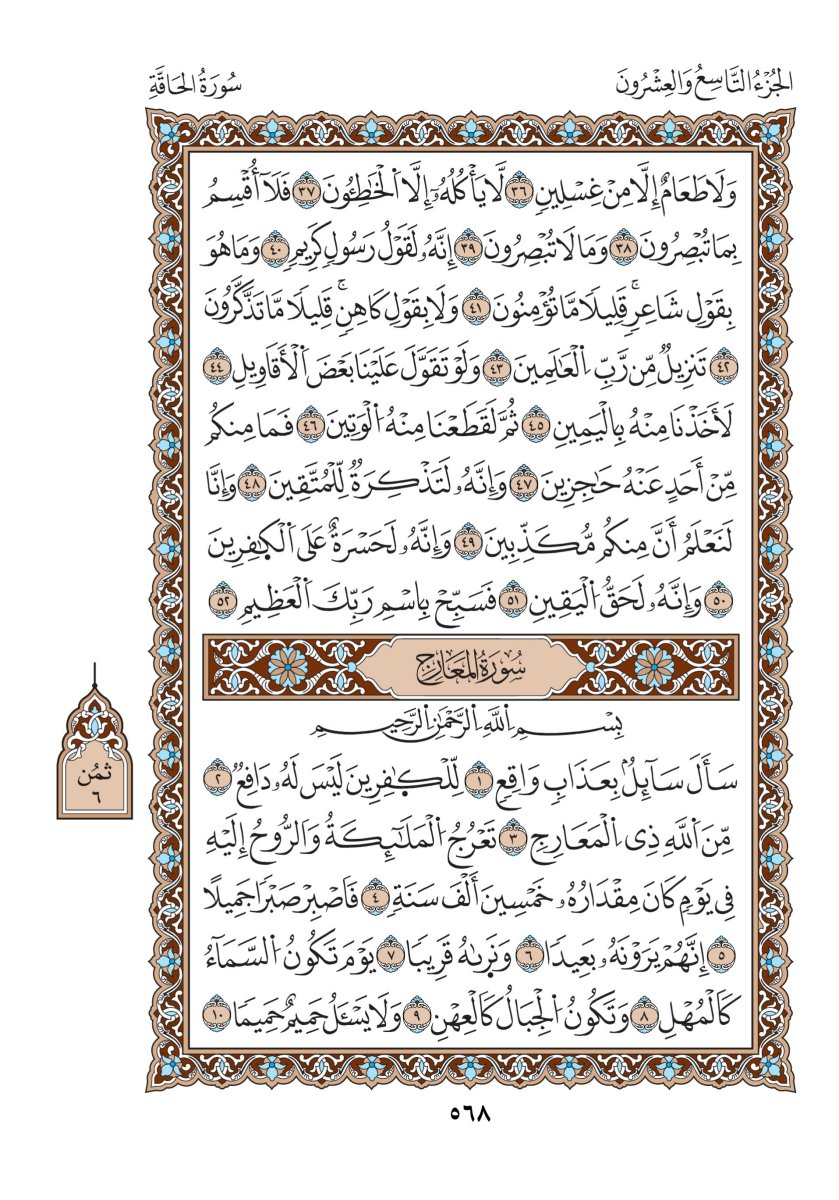 الجُزْءُ التَّاسِعُ وَالعِشْرُونَ
سُورَةُ الحَاقَّةِ
وَلَا طَعَامٌ إِلَّا مِنْ غِسْلِينٍ ٣٦ لَّا يَأْكُلُهُۥٓ إِلَّا اَ۬لْخَٰطِـُٔونَ ٣٧ فَلَآ أُقْسِمُ
بِمَا تُبْصِرُونَ ٣٨ وَمَا لَا تُبْصِرُونَ ٣٩ إِنَّهُۥ لَقَوْلُ رَسُولٍ كَرِيمٍ ٤٠ وَمَا هُوَ
بِقَوْلِ شَاعِرٍۚ قَلِيلًا مَّا تُؤْمِنُونَ ٤١ وَلَا بِقَوْلِ كَاهِنٍۚ قَلِيلًا مَّا تَذَّكَّرُونَ
٤٢ تَنزِيلٌ مِّن رَّبِّ اِ۬لْعَٰلَمِينَ ٤٣ وَلَوْ تَقَوَّلَ عَلَيْنَا بَعْضَ اَ۬لْأَقَاوِيلِ ٤٤
لَأَخَذْنَا مِنْهُ بِالْيَمِينِ ٤٥ ثُمَّ لَقَطَعْنَا مِنْهُ اُ۬لْوَتِينَ ٤٦ فَمَا مِنكُم
مِّنْ أَحَدٍ عَنْهُ حَٰجِزِينَ ٤٧ وَإِنَّهُۥ لَتَذْكِرَةٌ لِّلْمُتَّقِينَ ٤٨ وَإِنَّا
لَنَعْلَمُ أَنَّ مِنكُم مُّكَذِّبِينَ ٤٩ وَإِنَّهُۥ لَحَسْرَةٌ عَلَى اَ۬لْكٰ۪فِرِينَ
٥٠ وَإِنَّهُۥ لَحَقُّ اُ۬لْيَقِينِ ٥١ فَسَبِّحْ بِاسْمِ رَبِّكَ اَ۬لْعَظِيمِ ٥٢
سُورَةُ المَعَارِجِ
بِسْمِ اِ۬للَّهِ اِ۬لرَّحْمَٰنِ اِ۬لرَّحِيمِ
سَأَلَ سَآئِلُۢ بِعَذَابٍ وَاقِعٍ ١ لِّلْكٰ۪فِرِينَ لَيْسَ لَهُۥ دَافِعٌ ٢
مِّنَ اَ۬للَّهِ ذِى اِ۬لْمَعَارِجِ ٣ تَعْرُجُ اُ۬لْمَلَٰٓئِكَةُ وَالرُّوحُ إِلَيْهِ
فِى يَوْمٍ كَانَ مِقْدَارُهُۥ خَمْسِينَ أَلْفَ سَنَةٍ ٤ فَاصْبِرْ صَبْرًا جَمِيلًا
٥ إِنَّهُمْ يَرَوْنَهُۥ بَعِيدًا ٦ وَنَر۪ىٰهُ قَرِيبًا ٧ يَوْمَ تَكُونُ اُ۬لسَّمَآءُ
كَالْمُهْلِ ٨ وَتَكُونُ اُ۬لْجِبَالُ كَالْعِهْنِ ٩ وَلَا يَسْـَٔلُ حَمِيمٌ حَمِيمًا ١٠
ثُمُن
٦
٥٦٨